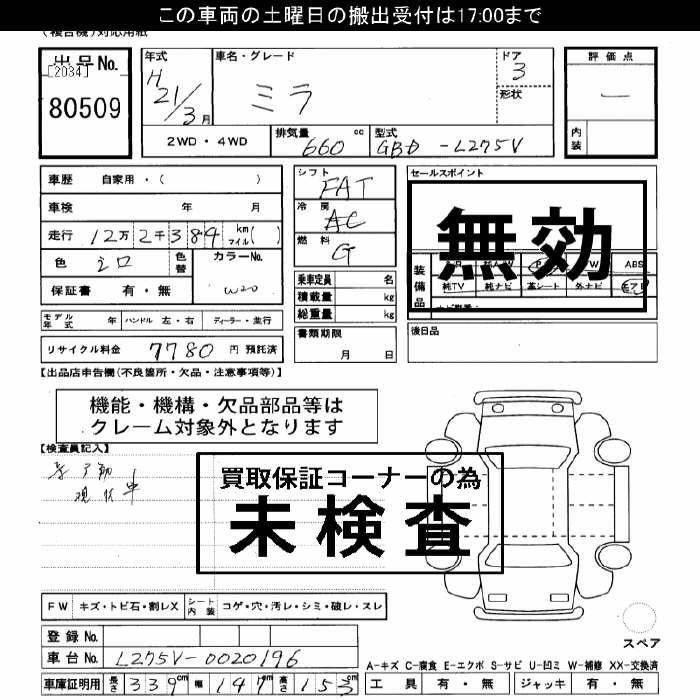 この車両の土曜日の搬出受付は17:00まで
(複合機)対応用紙
出品No.
[2034]
80509
年式
H 21/3 月
車名・グレード
ミラ
ドア
3
形状
評価点
—
内装
2WD・4WD
排気量 cc
660
型式
GBD-L275V
車歴 自家用・( )
車検 年 月
走行 12万2千384 km マイル( )
色 シロ
色替
カラーNo.
W20
保証書 有・無
シフト
FAT
冷房
AC
燃料
G
乗車定員 名
積載量 kg
総重量 kg
セールスポイント
無効
装備品
ABS
純TV 純ナビ 革シート 外ナビ エアB
モデル年式 年 ハンドル 左・右 ディーラー・並行
書類期限
月 日
後日品
リサイクル料金 7780 円 預託済
【出品店申告欄(不良箇所・欠品・注意事項等)】
機能・機構・欠品部品等は
クレーム対象外となります
【検査員記入】
現状車
買取保証コーナーの為
未検査
FW キズ・トビ石・割レX
シート内装 コゲ・穴・汚レ・シミ・破レ・スレ
登録No.
車台No. L275V-0020196
車庫証明用 長さ 339cm 幅 147cm 高さ 153cm
スペア
A-キズ C-腐食 E-エクボ S-サビ U-凹ミ W-補修 XX-交換済
工具 有・無 ジャッキ 有・無